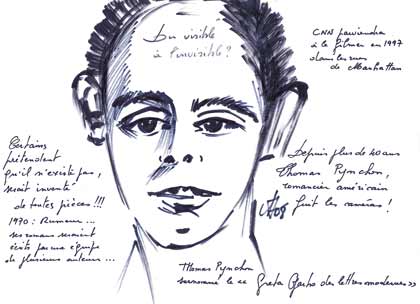 Du visible
à l'invisible?
CNN parviendra
à le filmer en 1997
dans les rues
de Manhattan
Certains
prétendent
qu'il n'existe pas,
serait inventé
de toutes pièces!!!
1970: Rumeur...
ses romans seraient
écrits par une équipe
de plusieurs auteurs...
Depuis plus de 40 ans
Thomas Pynchon,
romancier américain
fuit les caméras!
Thomas Pynchon
surnommé le Greta Garbo des lettres modernes.